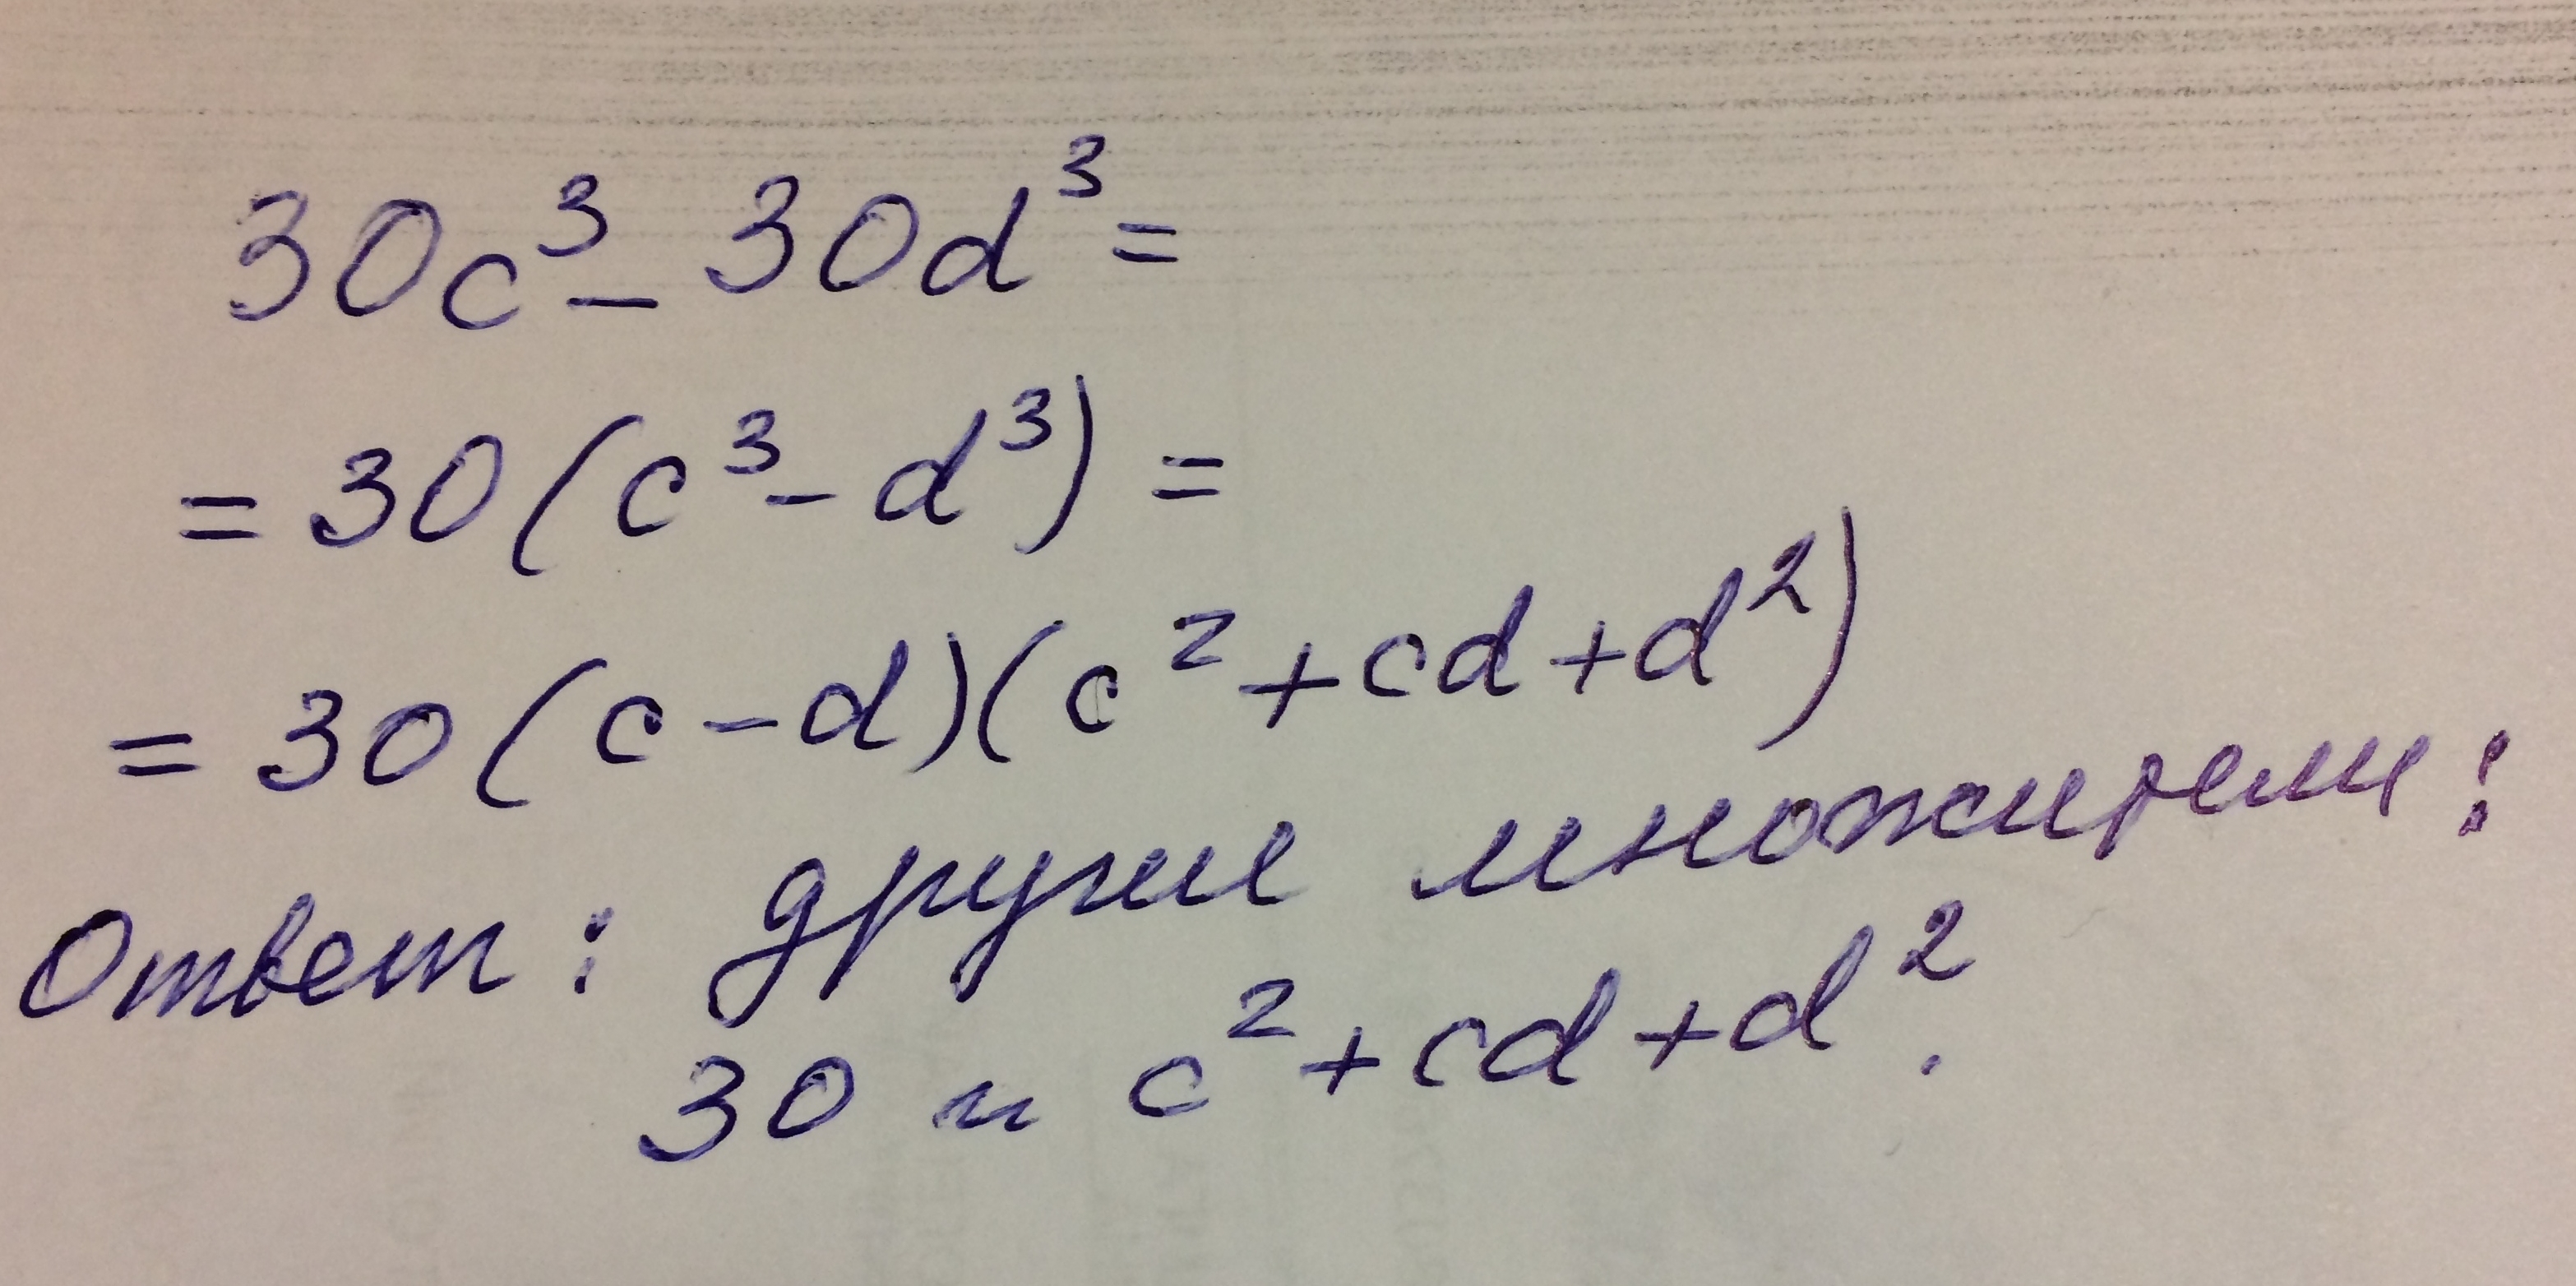 30c³ - 30d³ =
= 30(c³ - d³) =
= 30(c - d)(c² + cd + d²)
Ответ: другие множители:
30 и c² + cd + d².